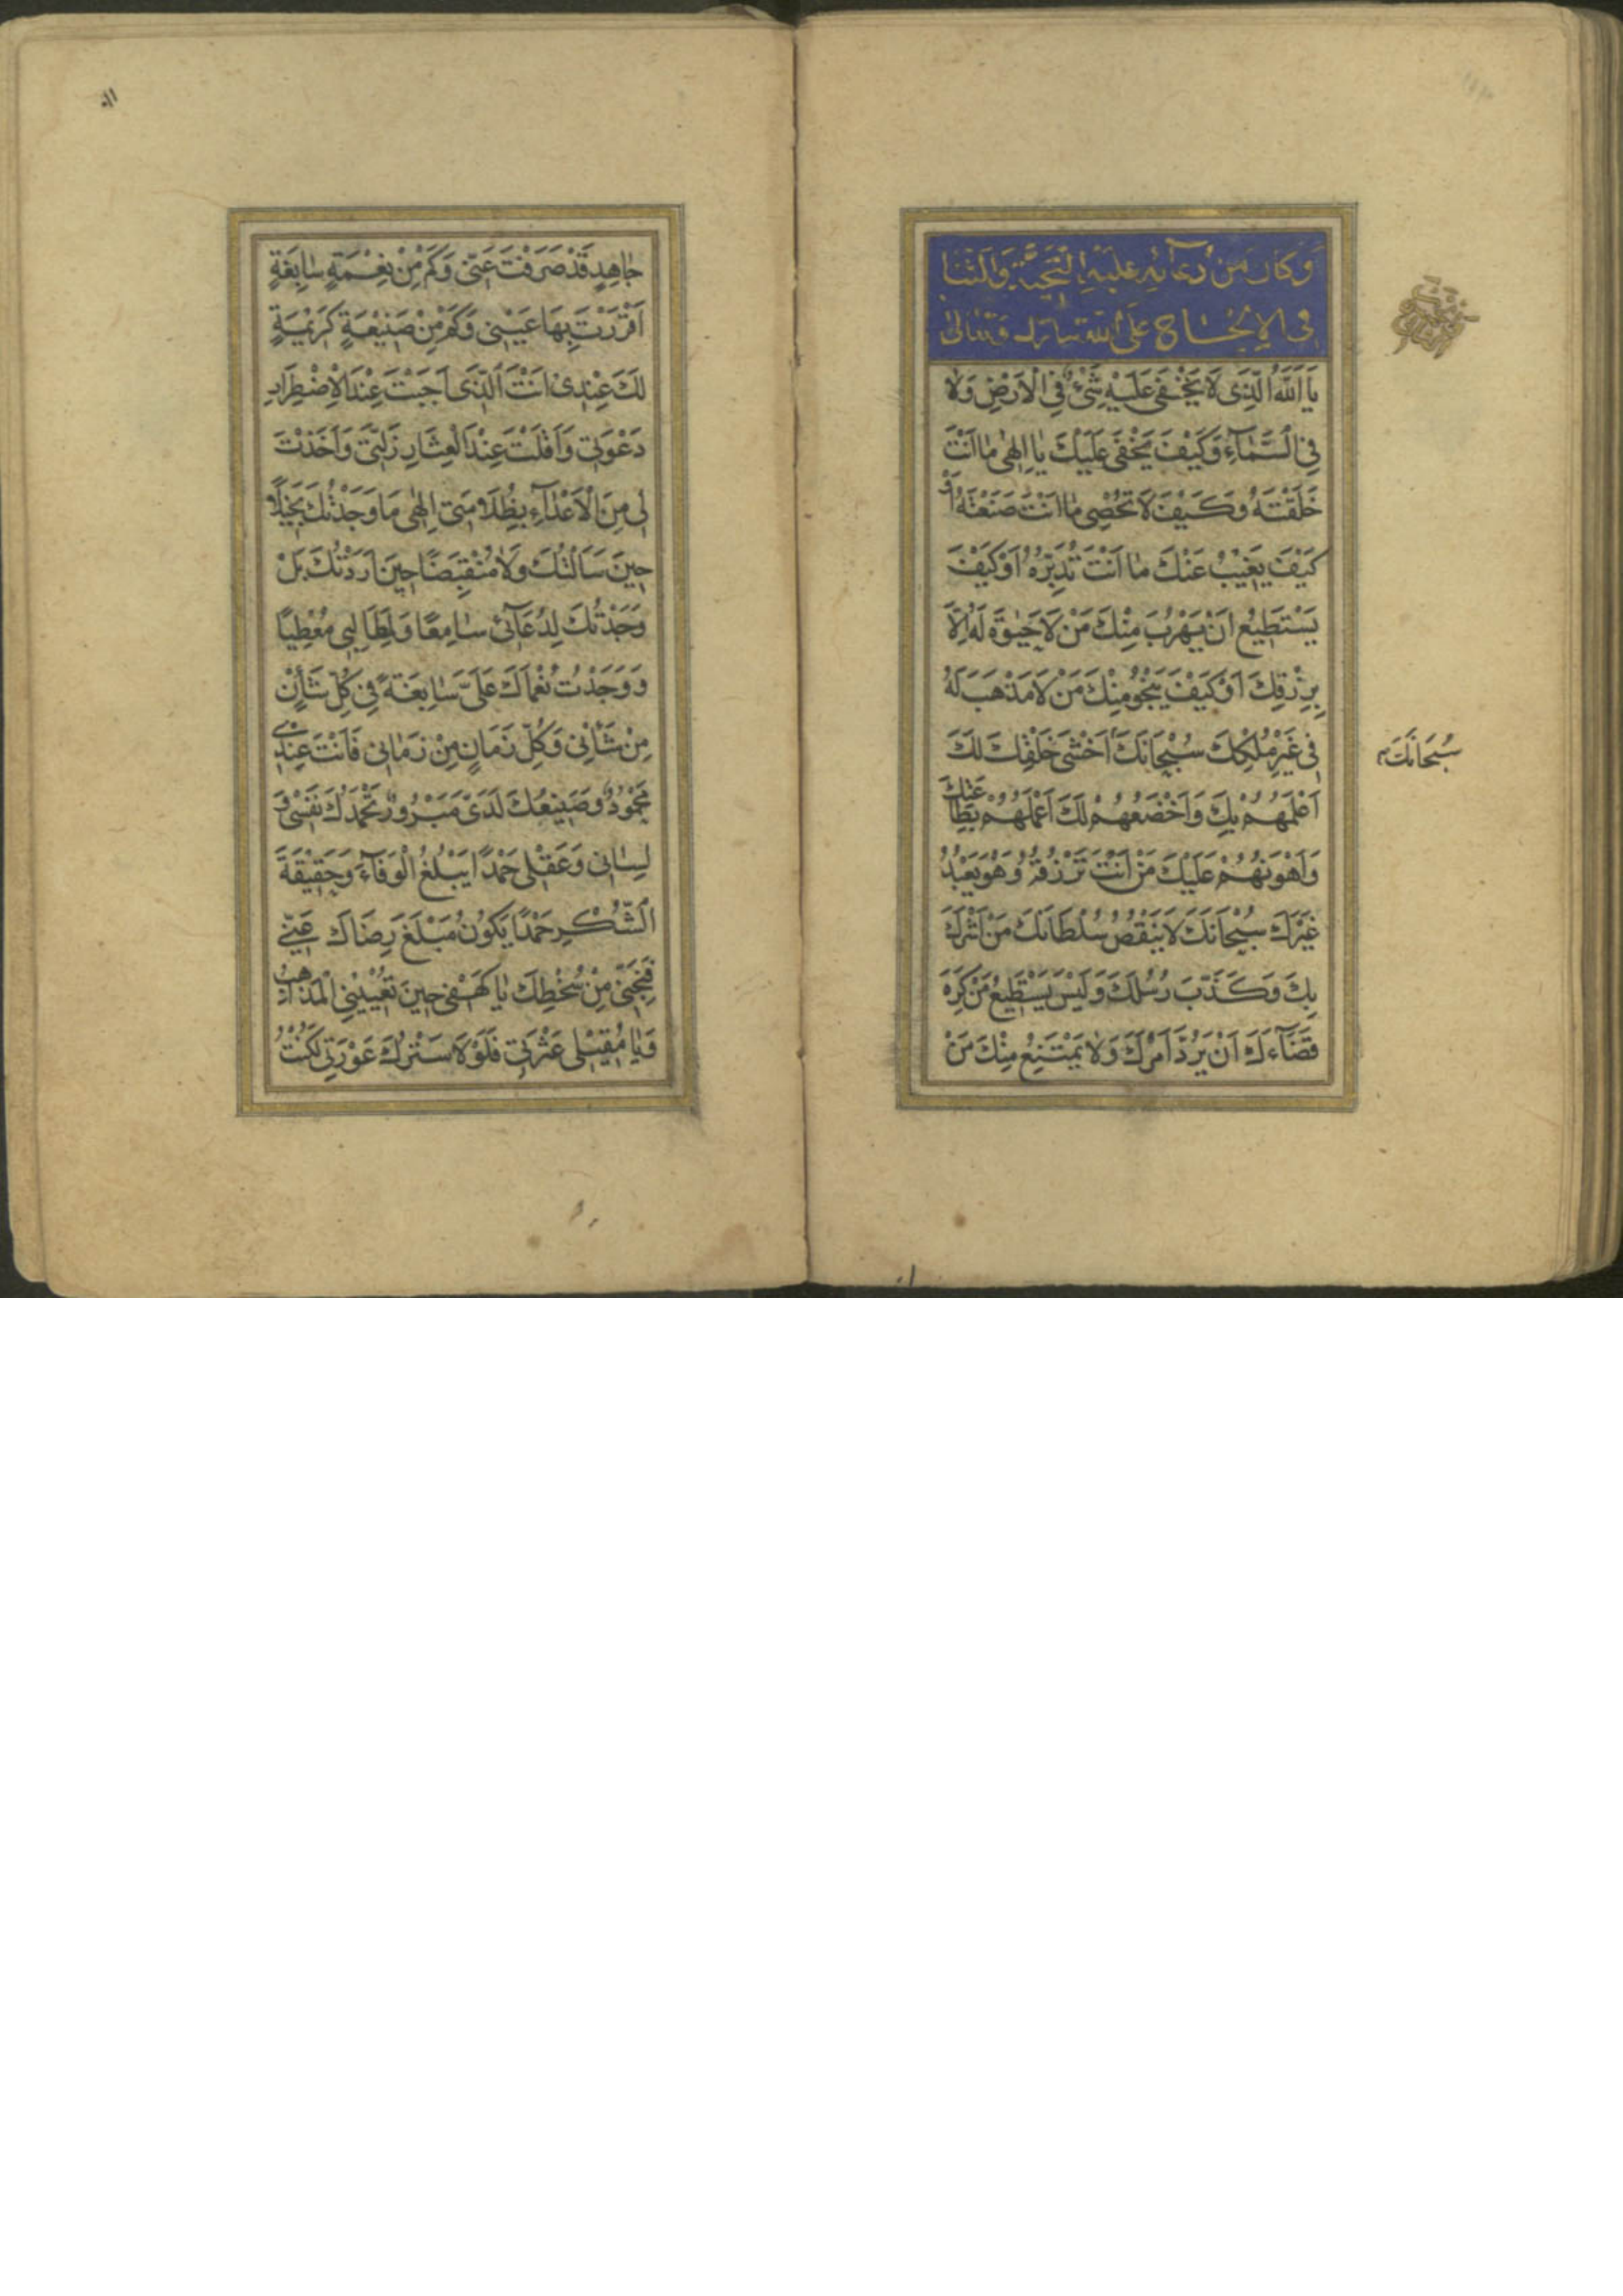 وَكَانَ مِنْ دُعَائِهِ عَلَيْهِ التَّحِيَّةُ وَالثَّنَا
فِي الْإِلْحَاحِ عَلَى اللّٰهِ تَبَارَكَ وَتَعَالىٰ
يَا اَللّٰهُ الَّذِى لَا يَخْفٰى عَلَيْهِ شَىْءٌ فِى الْاَرْضِ وَلَا
فِى السَّمَآءِ وَكَيْفَ يَخْفٰى عَلَيْكَ يَا اِلٰهِى مَا اَنْتَ
خَلَقْتَهُ وَكَيْفَ لَا تُحْصِى مَا اَنْتَ صَنَعْتَهُ اَوْ
كَيْفَ يَغِيْبُ عَنْكَ مَا اَنْتَ تُدَبِّرُهُ اَوْ كَيْفَ
يَسْتَطِيْعُ اَنْ يَهْرُبَ مِنْكَ مَنْ لَا حَيٰوةَ لَهُ اِلَّا
بِرِزْقِكَ اَوْ كَيْفَ يَنْجُوْ مِنْكَ مَنْ لَا مَذْهَبَ لَهُ
فِى غَيْرِ مُلْكِكَ سُبْحَانَكَ اَخْشٰى خَلْقِكَ لَكَ
سُبْحَانَكَ
اَعْلَمُهُمْ بِكَ وَاَخْضَعُهُمْ لَكَ اَعْمَلُهُمْ بِطَاعَتِكَ
وَاَهْوَنُهُمْ عَلَيْكَ مَنْ اَنْتَ تَرْزُقُهُ وَهُوَ يَعْبُدُ
غَيْرَكَ سُبْحَانَكَ لَا يَنْقُصُ سُلْطَانَكَ مَنْ اَشْرَكَ
بِكَ وَكَذَّبَ رُسُلَكَ وَلَيْسَ يَسْتَطِيْعُ مَنْ كَرِهَ
قَضَآءَكَ اَنْ يَرُدَّ اَمْرَكَ وَلَا يَمْتَنِعُ مِنْكَ مَنْ
جَاهِدٍ قَدْ صَرَفْتَ عَنِّى وَكَمْ مِنْ نِعْمَةٍ سَابِغَةٍ
اَقْرَرْتَ بِهَا عَيْنِى وَكَمْ مِنْ صَنِيْعَةٍ كَرِيْمَةٍ
لَكَ عِنْدِى اَنْتَ الَّذِى اَجَبْتَ عِنْدَ الْاِضْطِرَارِ
دَعْوَتِى وَاَقَلْتَ عِنْدَ الْعِثَارِ زَلَّتِى وَاَخَذْتَ
لِى مِنَ الْاَعْدَآءِ بِظُلَامَتِى اِلٰهِى مَا وَجَدْتُكَ بَخِيْلًا
حِيْنَ سَاَلْتُكَ وَلَا مُنْقَبِضًا حِيْنَ اَرَدْتُكَ بَلْ
وَجَدْتُكَ لِدُعَآئِى سَامِعًا وَلِمَطَالِبِى مُعْطِيًا
وَوَجَدْتُ نُعْمَاكَ عَلَىَّ سَابِغَةً فِى كُلِّ شَأْنٍ
مِنْ شَأْنِى وَكُلِّ زَمَانٍ مِنْ زَمَانِى فَاَنْتَ عِنْدِى
مَحْمُوْدٌ وَصَنِيْعُكَ لَدَىَّ مَبْرُوْرٌ تَحْمَدُكَ نَفْسِى وَ
لِسَانِى وَعَقْلِى حَمْدًا يَبْلُغُ الْوَفَآءَ وَحَقِيْقَةَ
الشُّكْرِ حَمْدًا يَكُوْنُ مَبْلَغَ رِضَاكَ عَنِّى
فَنَجِّنِى مِنْ سُخْطِكَ يَا كَهْفِى حِيْنَ تُعْيِيْنِى الْمَذَاهِبُ
وَيَا مُقِيْلِى عَثْرَتِى فَلَوْلَا سَتْرُكَ عَوْرَتِى لَكُنْتُ